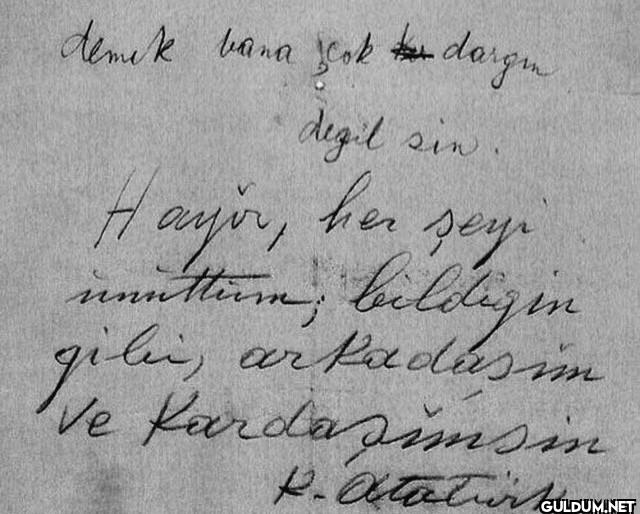 demek bana çok dargın
değil sin.
Hayır, her şeyi
unuttum; bildiğin
gibi, arkadaşım
ve Kardaşımsın
K. Atatürk
GULDUM.NET